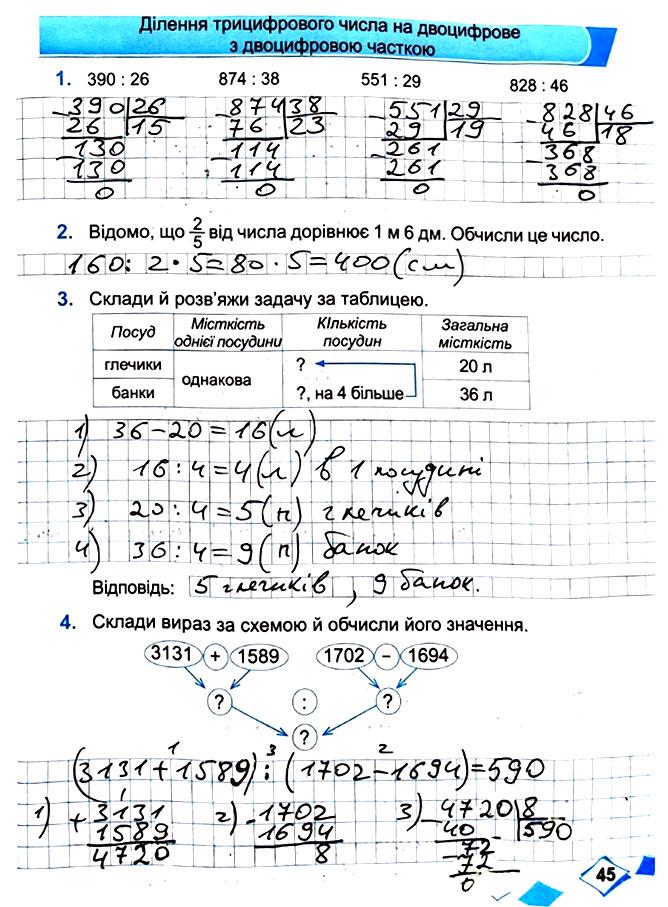 Ділення трицифрового числа на двоцифрове
з двоцифровою часткою
1. 390 : 26 874 : 38 551 : 29 828 : 46
-390 26 -874 38 -551 29 -828 46
26 15 76 23 29 19 46 18
-130 -114 -261 -368
130 114 261 368
0 0 0 0
2. Відомо, що 2/5 від числа дорівнює 1 м 6 дм. Обчисли це число.
160 : 2 · 5 = 80 · 5 = 400 (см)
3. Склади й розв’яжи задачу за таблицею.
Посуд Місткість однієї посудини Кількість посудин Загальна місткість
глечики однакова ? 20 л
банки ?, на 4 більше 36 л
1) 36 – 20 = 16 (л)
2) 16 : 4 = 4 (л) в 1 посудині
3) 20 : 4 = 5 (п) глечиків
4) 36 : 4 = 9 (п) банок
Відповідь: 5 глечиків, 9 банок.
4. Склади вираз за схемою й обчисли його значення.
3131 + 1589 1702 – 1694
? : ?
?
1 3 2
(3131 + 1589) : (1702 – 1694) = 590
1) +3131 2) -1702 3) -4720 8
1589 1694 40 590
4720 8 -72
72
0
45